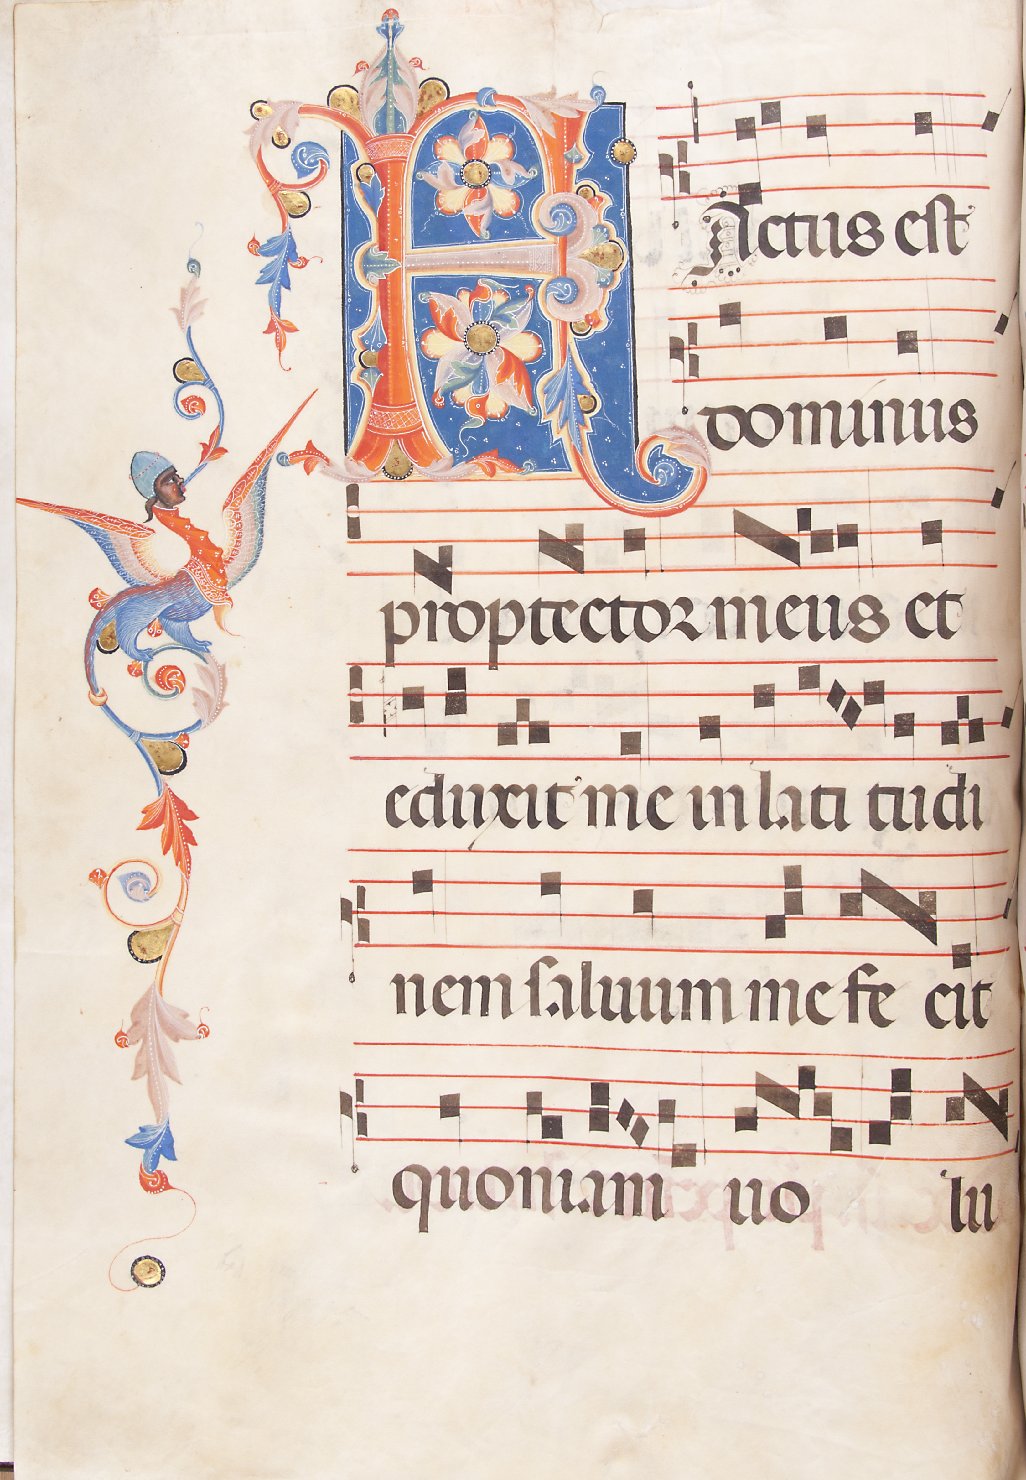 FActus est
dominus
proptector meus et
eduxit me in lati tudi
nem saluum me fe cit
quoniam uo lu